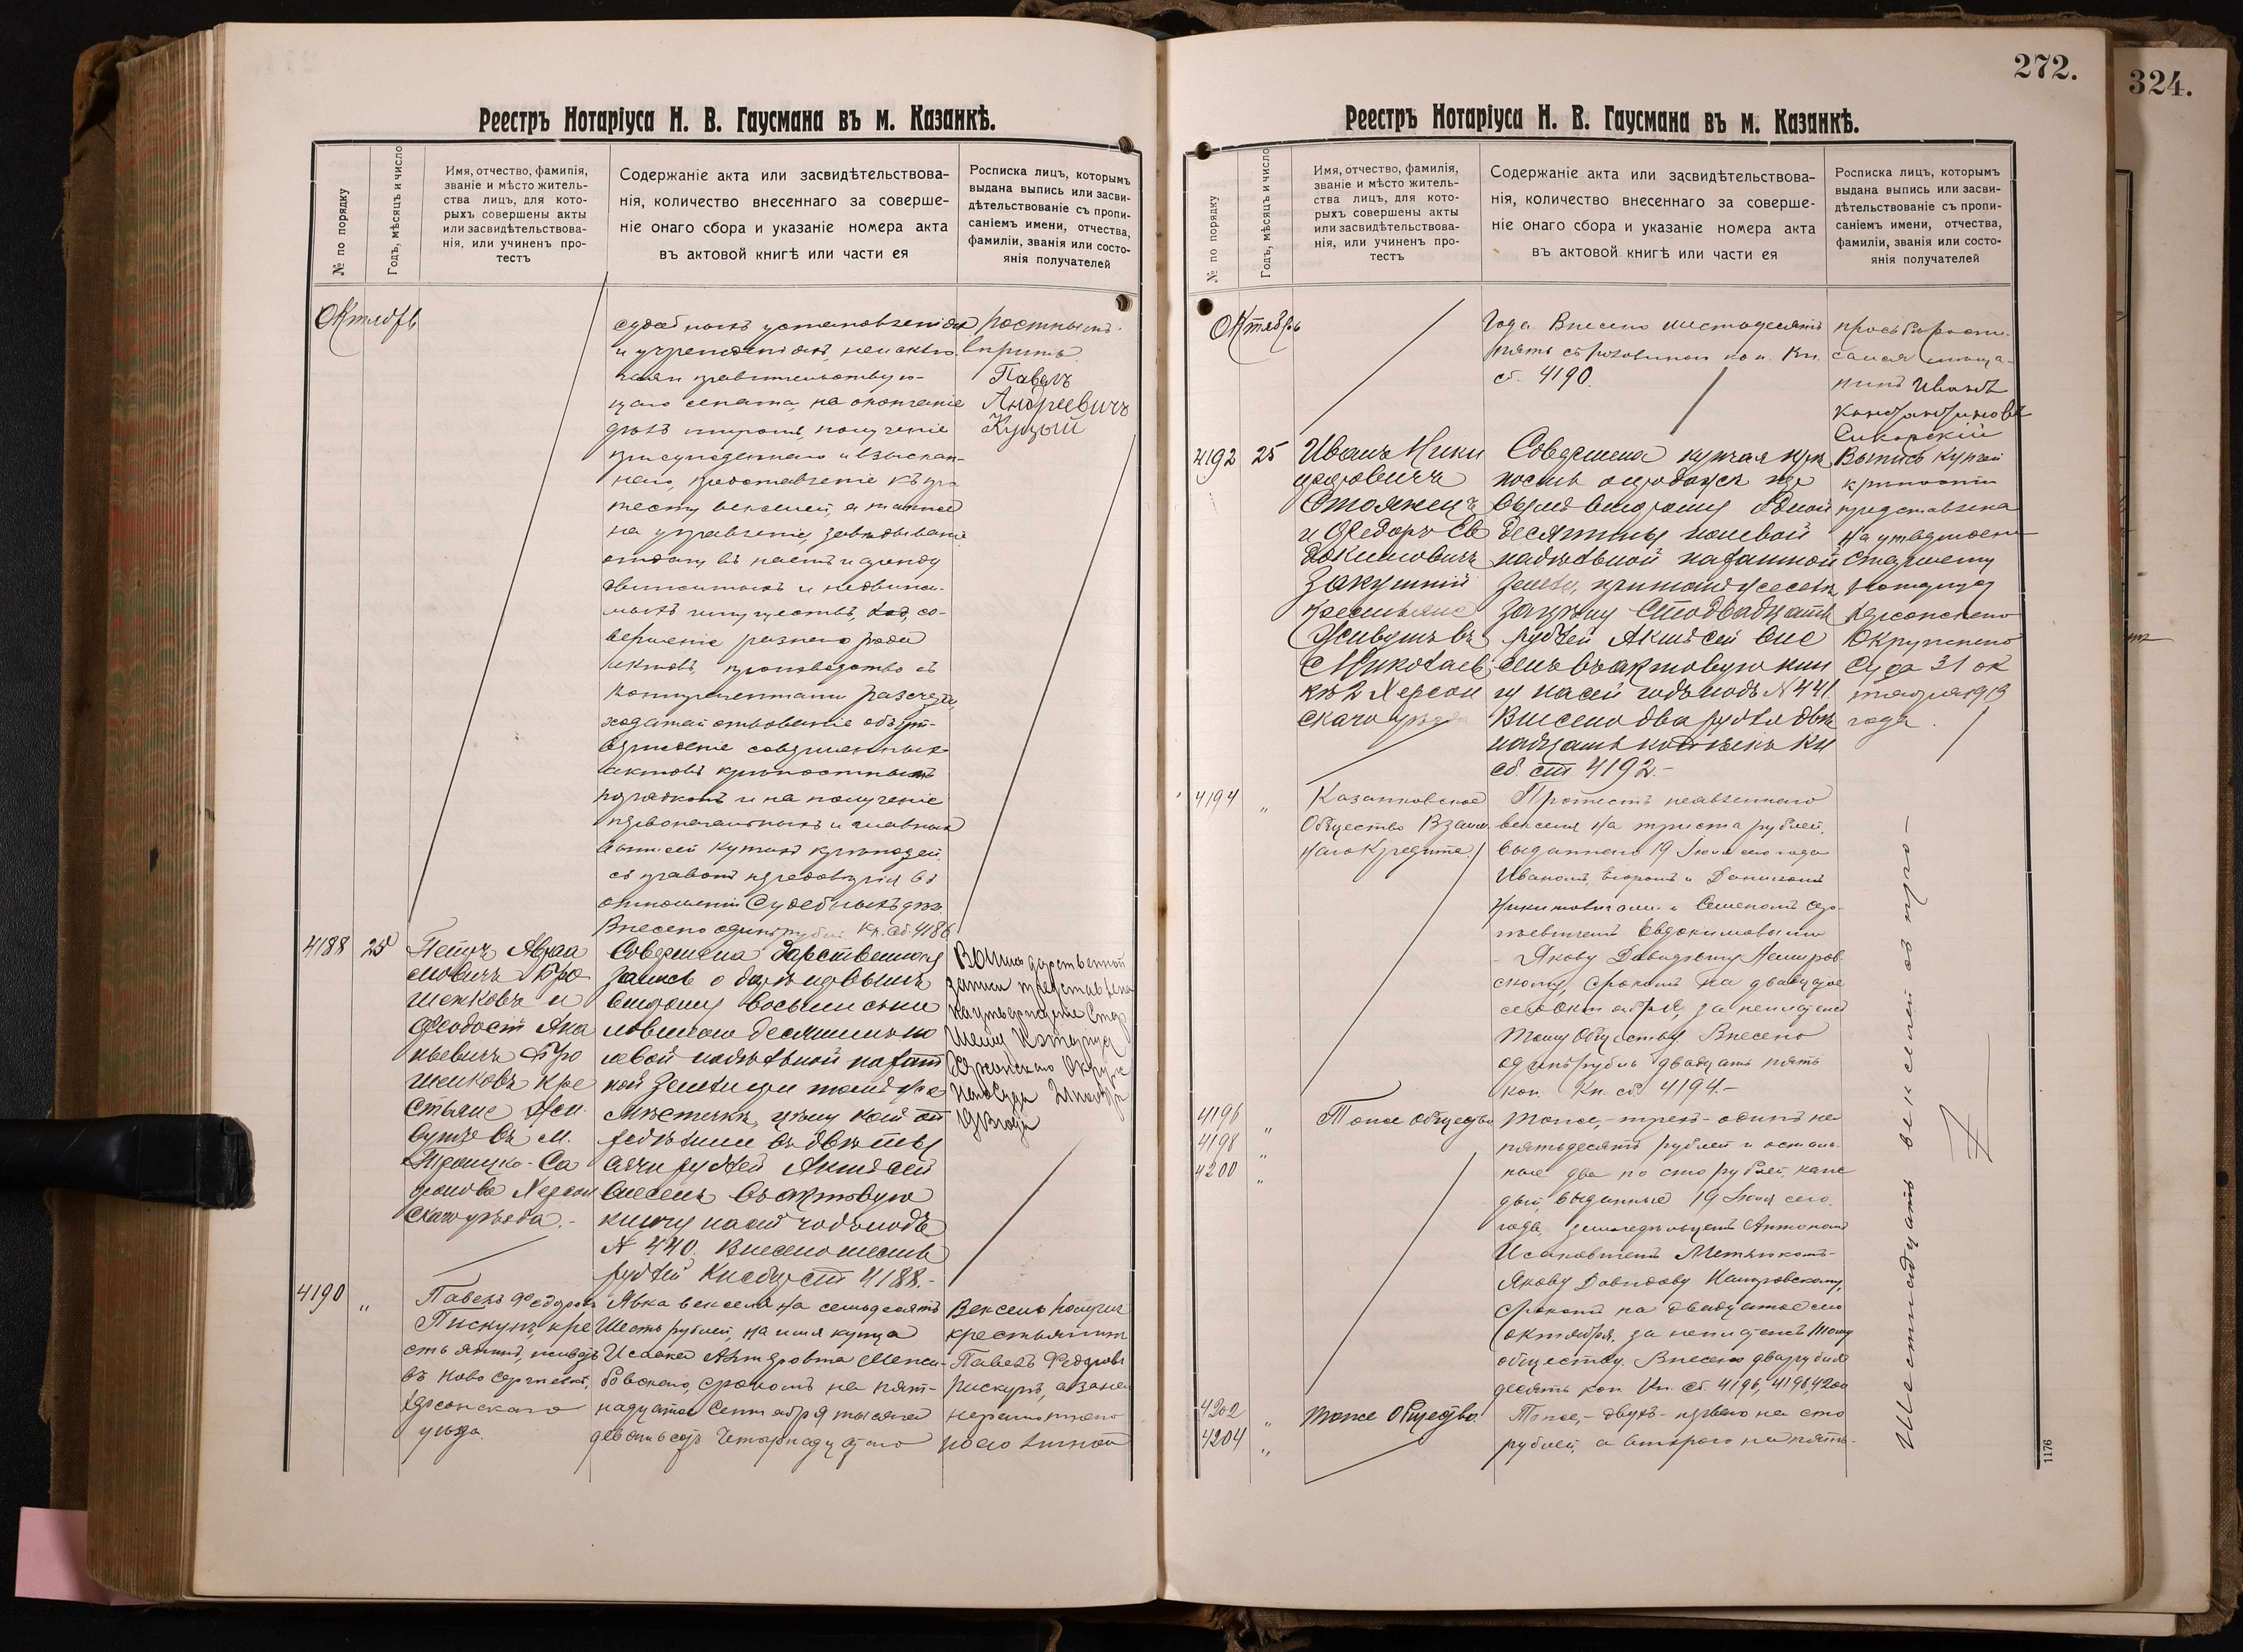 272.
324.
Реестръ Нотаріуса Н. В. Гаусмана въ м. Казанкѣ.
№ по порядку
Годъ, мѣсяцъ и число
Имя, отчество, фамилія,
званіе и мѣсто житель-
ства лицъ, для кото-
рыхъ совершены акты
или засвидѣтельствова-
нія, или учиненъ про-
тестъ
Содержаніе акта или засвидѣтельствова-
нія, количество внесеннаго за соверше-
ніе онаго сбора и указаніе номера акта
въ актовой книгѣ или части ея
Росписка лицъ, которымъ
выдана выпись или засви-
дѣтельствованіе съ пропи-
саніемъ имени, отчества,
фамиліи, званія или состо-
янія получателей
Октябрь
судебныхъ установленіяхъ
и учрежденіяхъ, не исклю-
чая и правительствую-
щаго сената, на окончаніе
дѣлъ миромъ, полученіе
присужденнаго и взыскан-
наго, предъявленіе къ про-
тесту векселей, а также
на управленіе, завѣдываніе
отдачу въ наемъ и аренду
движимыхъ и недвижи-
мыхъ имуществъ, со-
вершеніе разнаго рода
актовъ, производство съ
контрагентами разсчета,
ходатайствованіе объ ут-
вержденіе совершенныхъ
актовъ крѣпостнымъ
порядкомъ и на полученіе
первоначальныхъ и главныхъ
выписей купчихъ крѣпостей
съ правомъ передовѣрія въ
отношеніи Судебныхъ дѣлъ.
Внесено одинъ рубль Кн. сб. 4186
вѣрить.
Павелъ
Андреевичъ
Куцый
4188
25
Петръ Абра
мовичъ Бро
шенковъ и
Феодосій Ана
ньевичъ Бро
шенковъ кре
стьяне жи-
вущіе въ м.
Троицко-Са
фоново Херсон
скаго уѣзда.-
Совершена Дарственная
запись о дареніи первымъ
второму восьми съ по
ловиною десятинъ по
левой надѣльной пахат
ной земли при томъ же
мѣстечкѣ, цѣну коей оп
редѣлили въ двѣ ты
сячи рублей Актъ сей
внесенъ въ актовую
книгу на сей годъ подъ
№ 440. Внесено шесть
рублей Кн сбор ст 4188.-
Выпись дарственной
записи представлена
на утвержденіе Стар
шему Нотаріусу
Херсонскаго Окруж
наго Суда
4190
"
Павелъ Федоров
Пискунъ, кре
стьянинъ, живущ
въ Ново Сергѣевкѣ,
Херсонскаго
уѣзда.
Явка векселя на семьдесятъ
Шесть рублей, на имя купца
Исаака
срокомъ на пят-
надцатое Сентября тысяча
девятьсотъ Четырнадцатаго
Вексель получилъ
крестьянинъ
Павелъ Федоровъ
Пискунъ, а за не
неграмотнаго
по его личной
Реестръ Нотаріуса Н. В. Гаусмана въ м. Казанкѣ.
№ по порядку
Годъ, мѣсяцъ и число
Имя, отчество, фамилія,
званіе и мѣсто житель-
ства лицъ, для кото-
рыхъ совершены акты
или засвидѣтельствова-
нія, или учиненъ про-
тестъ
Содержаніе акта или засвидѣтельствова-
нія, количество внесеннаго за соверше-
ніе онаго сбора и указаніе номера акта
въ актовой книгѣ или части ея
Росписка лицъ, которымъ
выдана выпись или засви-
дѣтельствованіе съ пропи-
саніемъ имени, отчества,
фамиліи, званія или состо-
янія получателей
Октябрь
Года. Внесено шестьдесятъ
пять съ половиной коп. Кн.
сб. 4190.
просьбѣ роспи-
сался мѣща-
нинъ Иванъ
Константиновъ
Сикорскій
4192
25
Иванъ Ники
форовичъ
Стоянецъ
и Федоръ Ев
докимовичъ
Закутній
крестьяне
живущіе въ
с Николаев
кѣ 2 Херсон
скаго уѣзда
Совершена купчая крѣ
пость о продажѣ пер
вымъ второму одной
десятины полевой
надѣльной пахатной
земли, при томъ же селѣ,
за цѣну Сто двадцать
рублей Актъ сей вне
сенъ въ актовую кни
гу на сей годъ подъ № 441.
Внесено два рубля двѣ
надцать копѣекъ Кн
сб. ст 4192.-
Выпись купчей
крѣпости
представлена
на утвержденіе
Старшему
Нотаріусу
Херсонскаго
Окружнаго
Суда 31 ок
тября 1913
года.
4194
"
Казанковское
Общество Взаим
наго Кредита.
Протестъ неявленнаго
векселя на триста рублей,
выданнаго 19 Іюля сего года
Иваномъ, Егоромъ и Даниломъ
Никитовичами и Семеномъ
Евдокимовыми
- Якову Давидову Немиров
скому, срокомъ на двадцатое
сего Октября, за неплатежъ
Тому Обществу Внесено
одинъ рубль двадцать пять
коп. Кн. сб. 4194.-
4196
4198
4200
"
"
"
Тоже общество
Тоже,- трехъ- одинъ на
пятьдесятъ рублей и осталь-
ные два по сто рублей, каж
дый, выданные 19 Іюля сего
года, земледѣльцемъ Антономъ
Исаковичемъ
Якову Давидову Немировскому,
срокомъ на двадцатое сего
октября, за неплатежъ тому
обществу. Внесено два рубля
десять коп. Кн. сб. 4196, 4198, 4200
4202
4204
"
"
Тоже Общество.
Тоже,- двухъ- перваго на сто
рублей, а второго на пять-
Шестнадцать векселей съ про-
1176